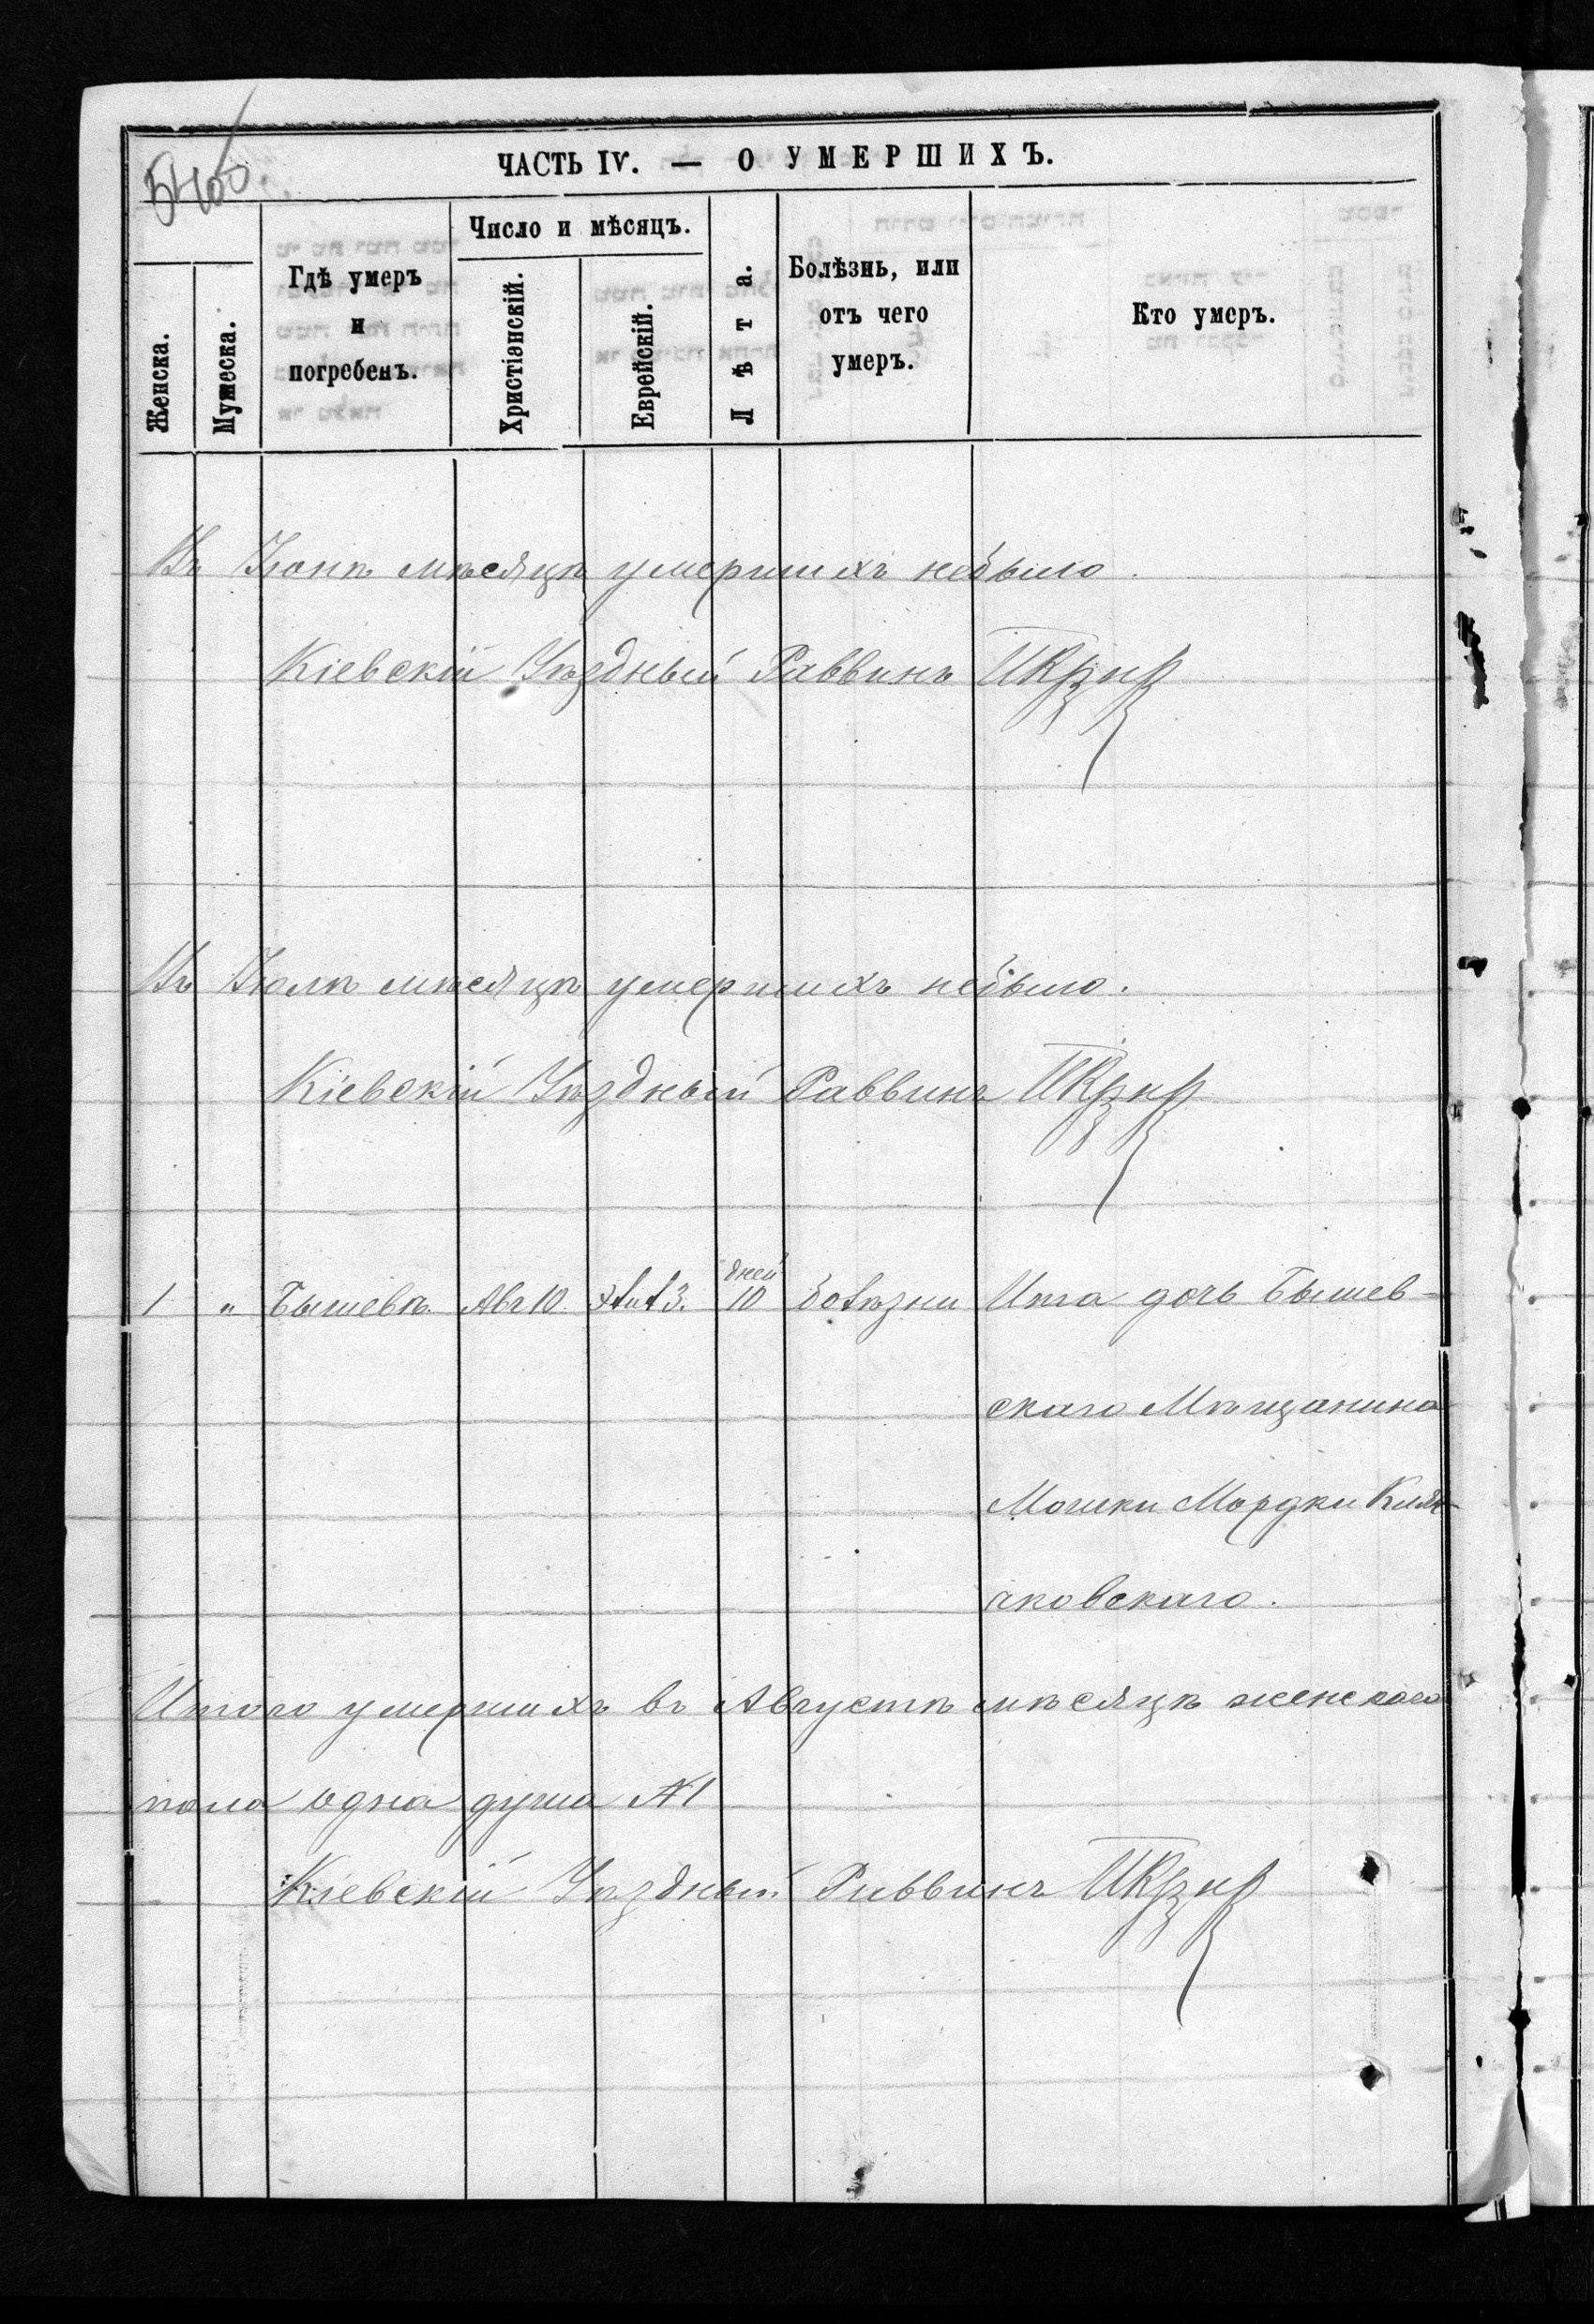 ЧАСТЬ IV. — О УМЕРШИХЪ.
Женска.
Мужеска.
Гдѣ умеръ
и
погребенъ.
Число и мѣсяцъ.
Христіанскій.
Еврейскій.
Лѣта.
Болѣзнь, или
отъ чего
умеръ.
Кто умеръ.
Въ Іюнѣ мѣсяцѣ умершихъ небыло.
Кіевскій Уѣздный Раввинъ
Въ Іюлѣ мѣсяцѣ умершихъ небыло.
Кіевскій Уѣздный Раввинъ
дней
1 " Бышевѣ Авг 10. 3. 10 болѣзни Ита дочь Бышев-
скаго Мѣщанина
Мошки Мордки
чковскаго.
Итого умершихъ въ Августѣ мѣсяцѣ женскаго
пола одна душа №1
Кіевскій Уѣздный Раввинъ